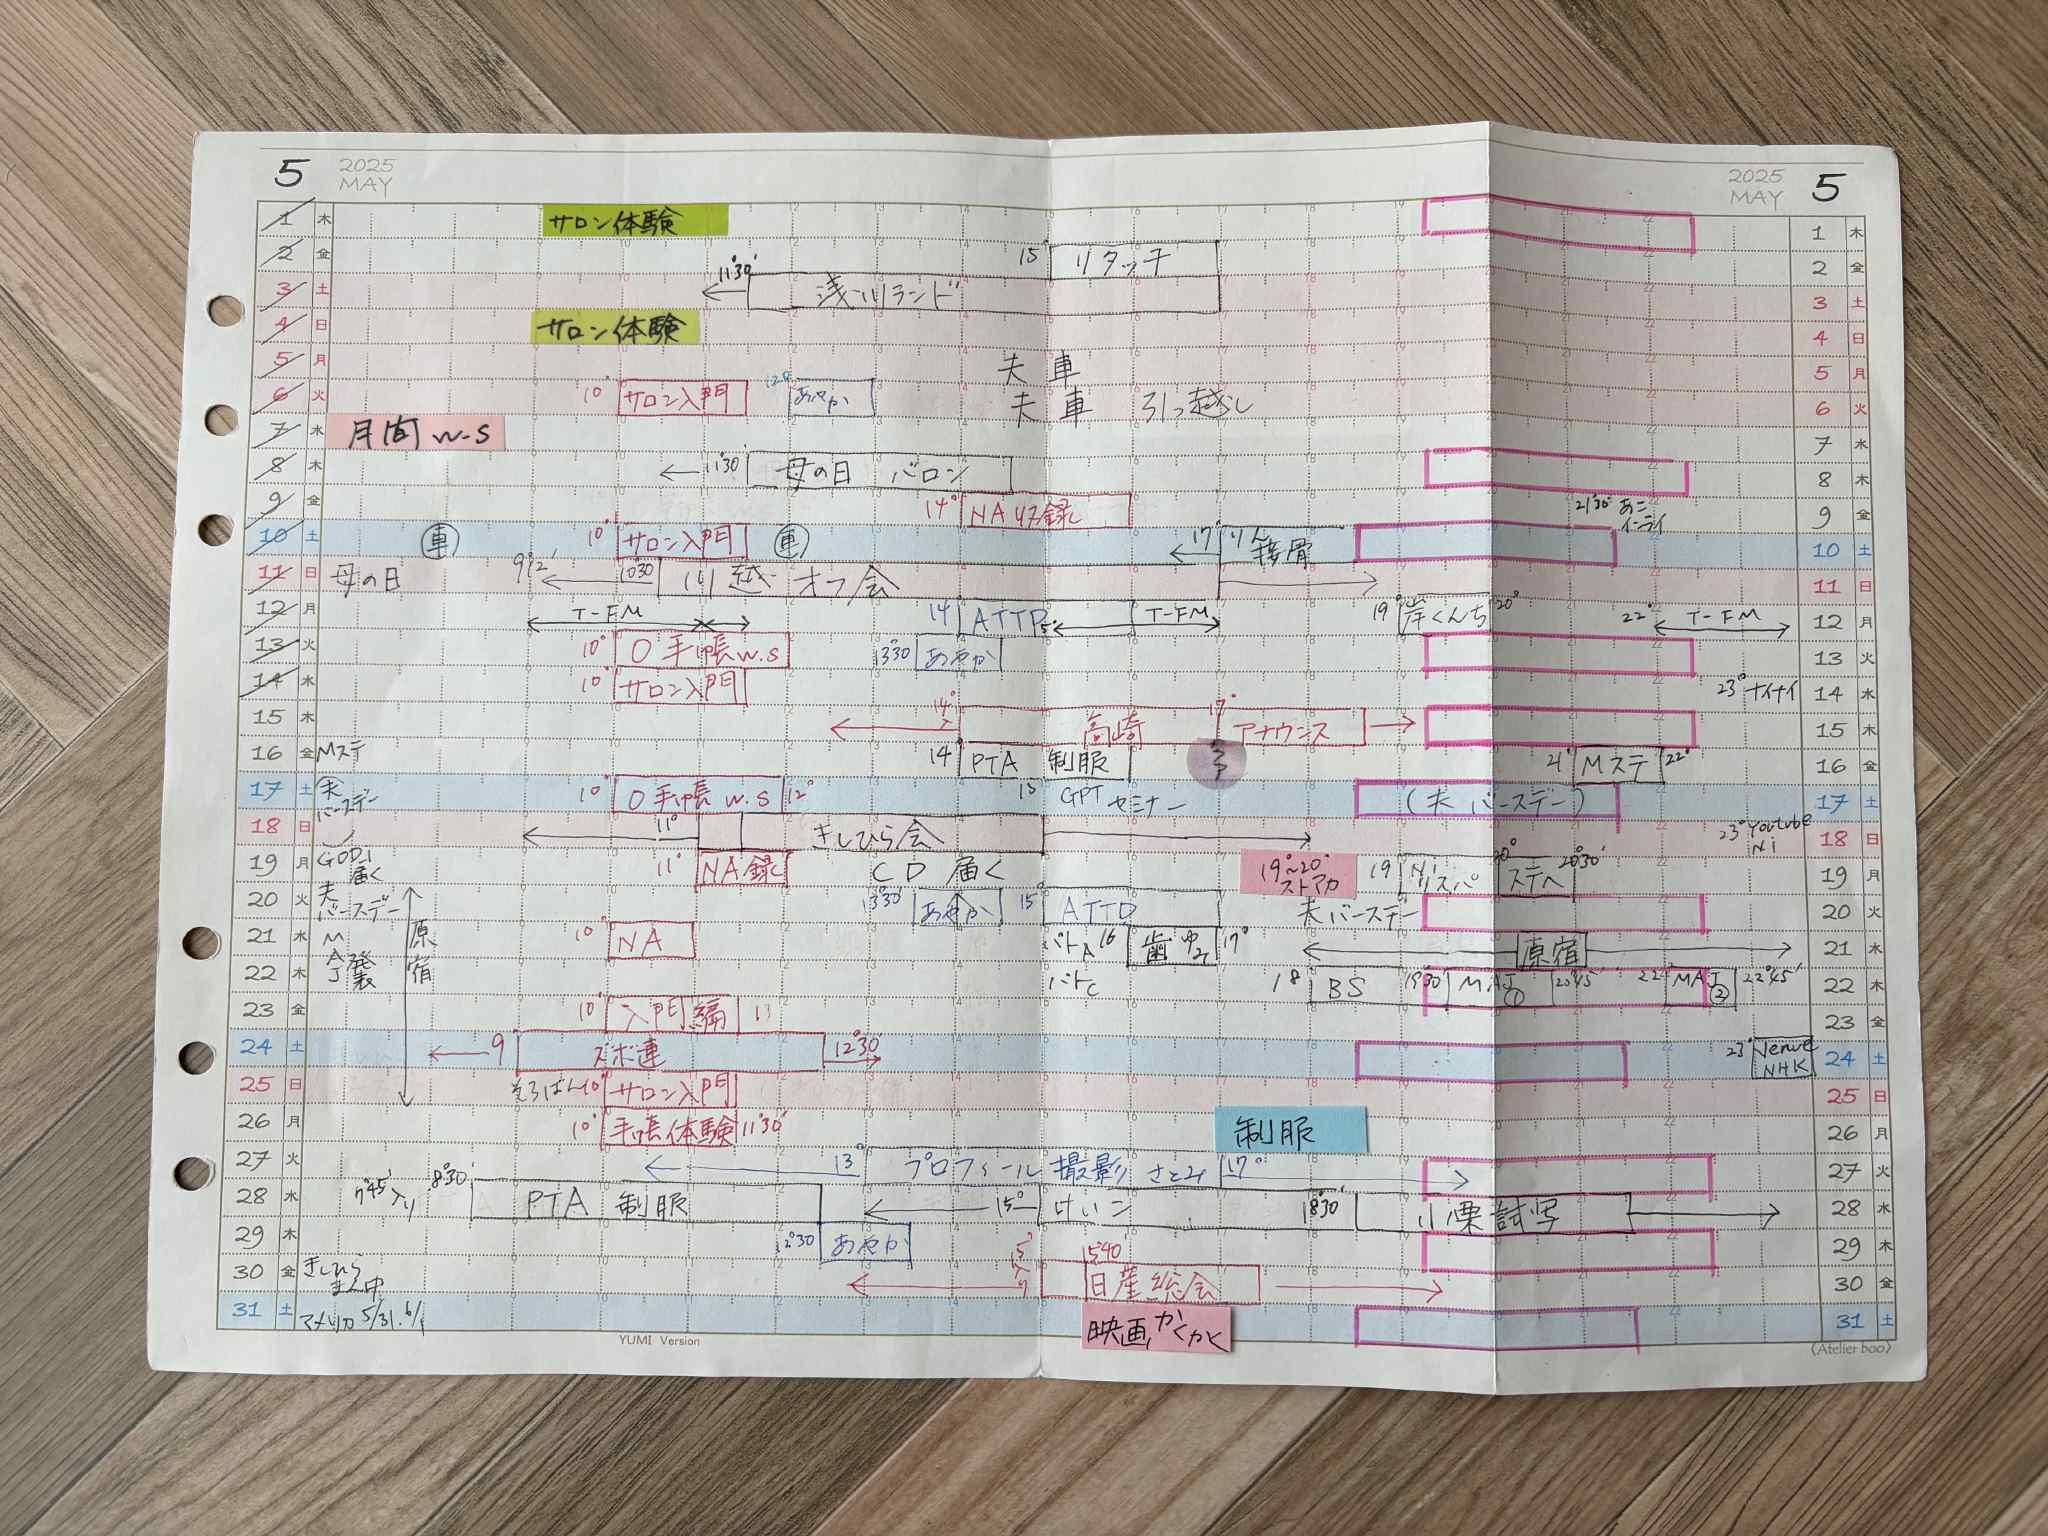 5 2025 MAY 2025 MAY 5
1 木 サロン体験 1 木
2 金 15° リタッチ 2 金
3 土 11°30' 浅川ランド 3 土
4 日 サロン体験 4 日
5 月 夫 車 5 月
6 火 10° サロン入門 あやか 夫 車 引っ越し 6 火
7 水 月間 W-S 7 水
8 木 11°30 母の日 バロン 8 木
9 金 14° NA 録 21°30' 9 金
10 土 車 10° サロン入門 車 17° りん 接骨 10 土
11 日 母の日 10°30 川越 オフ会 11 日
12 月 T-FM 14° T-FM 19° 岸くんち 20° 22° T-FM 12 月
13 火 10° O 手帳 W.S 13°30 あやか 13 火
14 水 10° サロン入門 23° ナイナイ 14 水
15 木 14° 高崎 17° アナウンス 15 木
16 金 Mステ 14° PTA 制服 21° Mステ 22° 16 金
17 土 夫 バースデー 10° O 手帳 W.S 12° 15 GPT セミナー (夫 バースデー) 17 土
18 日 11° きしひら会 23° Youtube Ni 18 日
19 月 届く 11° NA 録 CD 届く 19°~20° ストアカ 19 リスパ 20° ステへ 20°30' 19 月
20 火 夫 バースデー 13°30 あやか 15° 夫 バースデー 20 火
21 水 MAJ 発表 原宿 10° NA バトA 16 歯 17° 原宿 21 水
22 木 バトC 18 BS 19°30 MAJ① 20°45' 22° MAJ② 22°45' 22 木
23 金 10° 入門編 13 23 金
24 土 9 ズボ連 12°30 23° Venue NHK 24 土
25 日 そろばん 10° サロン入門 25 日
26 月 10° 手帳体験 11°30' 制服 26 月
27 火 13° プロフィール 撮影 さとみ 17° 27 火
28 水 7°45' 入り 8°30' PTA 制服 15° けいこ 18°30 小栗 試写 28 水
29 木 12°30 あやか 29 木
30 金 きしひら まん中 15°40 日産総会 30 金
31 土 アメリカ 5/31. 6/1 映画 かくかく 31 土
YUMI Version
(Atelier boo)